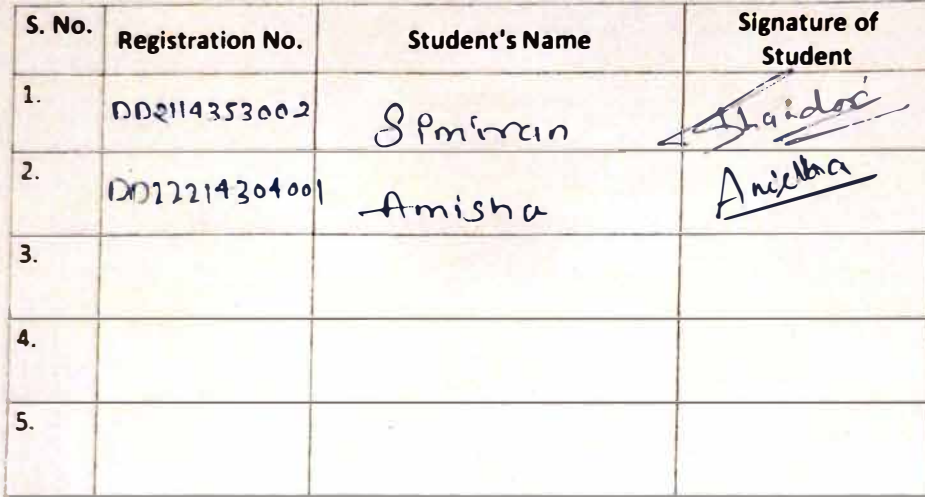 S. No. Registration No. Student's Name Signature of Student
1. DD2114353002 Simran
2. DD22214304001 Amisha
3.
4.
5.